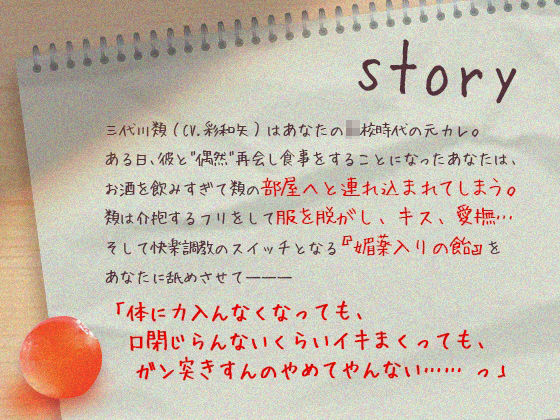 story
三代川類(CV.彩和矢)はあなたの校時代の元カレ。
ある日、彼と"偶然"再会し食事をすることになったあなたは、
お酒を飲みすぎて類の部屋へと連れ込まれてしまう。
類は介抱するフリをして服を脱がし、キス、愛撫…
そして快楽調教のスイッチとなる『媚薬入りの飴』を
あなたに舐めさせて―――
「体に力入んなくなっても、
口閉じらんないくらいイキまくっても、
ガン突きすんのやめてやんない…… っ」